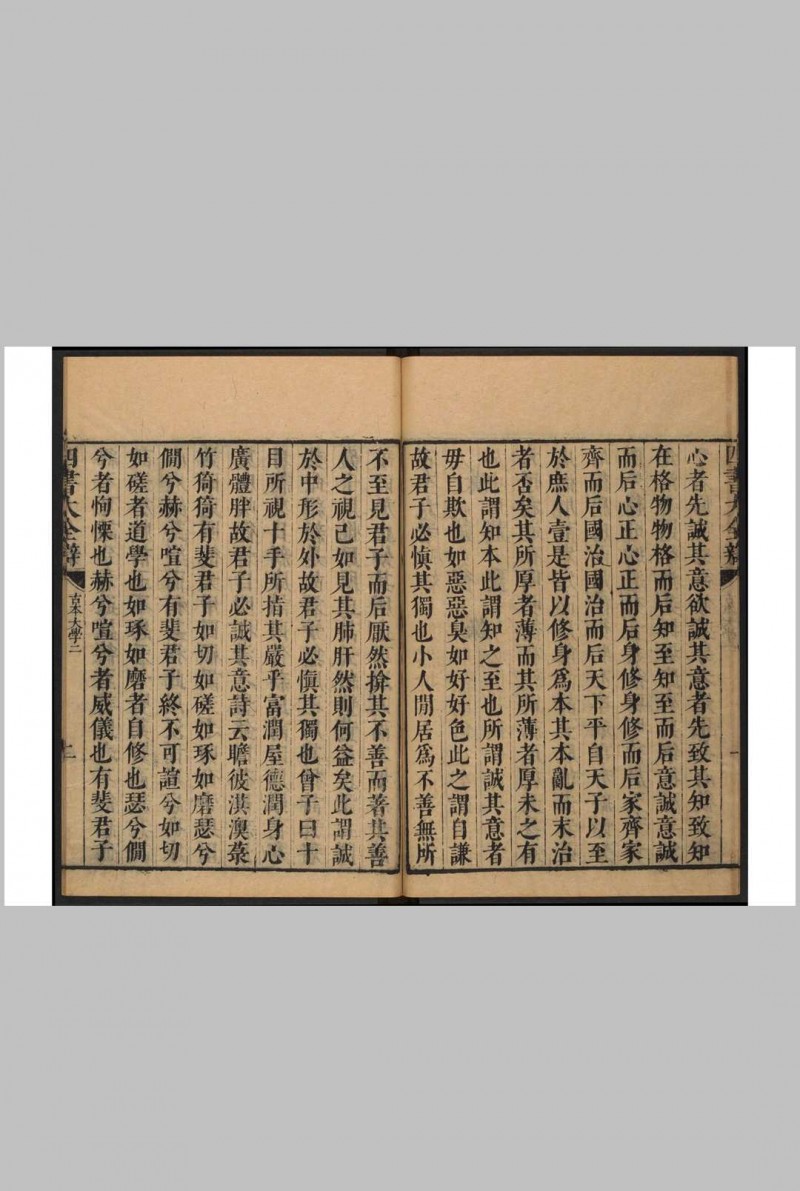 四書大全辨
一
心者先誠其意欲誠其意者先致其知致知
在格物物格而后知至知至而后意誠意誠
而后心正心正而后身修身修而后家齊家
齊而后國治國治而后天下平自天子以至
於庶人壹是皆以修身爲本其本亂而末治
者否矣其所厚者薄而其所薄者厚未之有
也此謂知本此謂知之至也所謂誠其意者
毋自欺也如惡惡臭如好好色此之謂自謙
故君子必慎其獨也小人閒居爲不善無所
不至見君子而后厭然揜其不善而著其善
人之視己如見其肺肝然則何益矣此謂誠
於中形於外故君子必慎其獨也曾子曰十
目所視十手所指其嚴乎富潤屋德潤身心
廣體胖故君子必誠其意詩云瞻彼淇澳菉
竹猗猗有斐君子如切如磋如琢如磨瑟兮
僩兮赫兮喧兮有斐君子終不可諠兮如切
如磋者道學也如琢如磨者自修也瑟兮僩
兮者恂慄也赫兮喧兮者威儀也有斐君子
四書大全辨
古本大學二
二